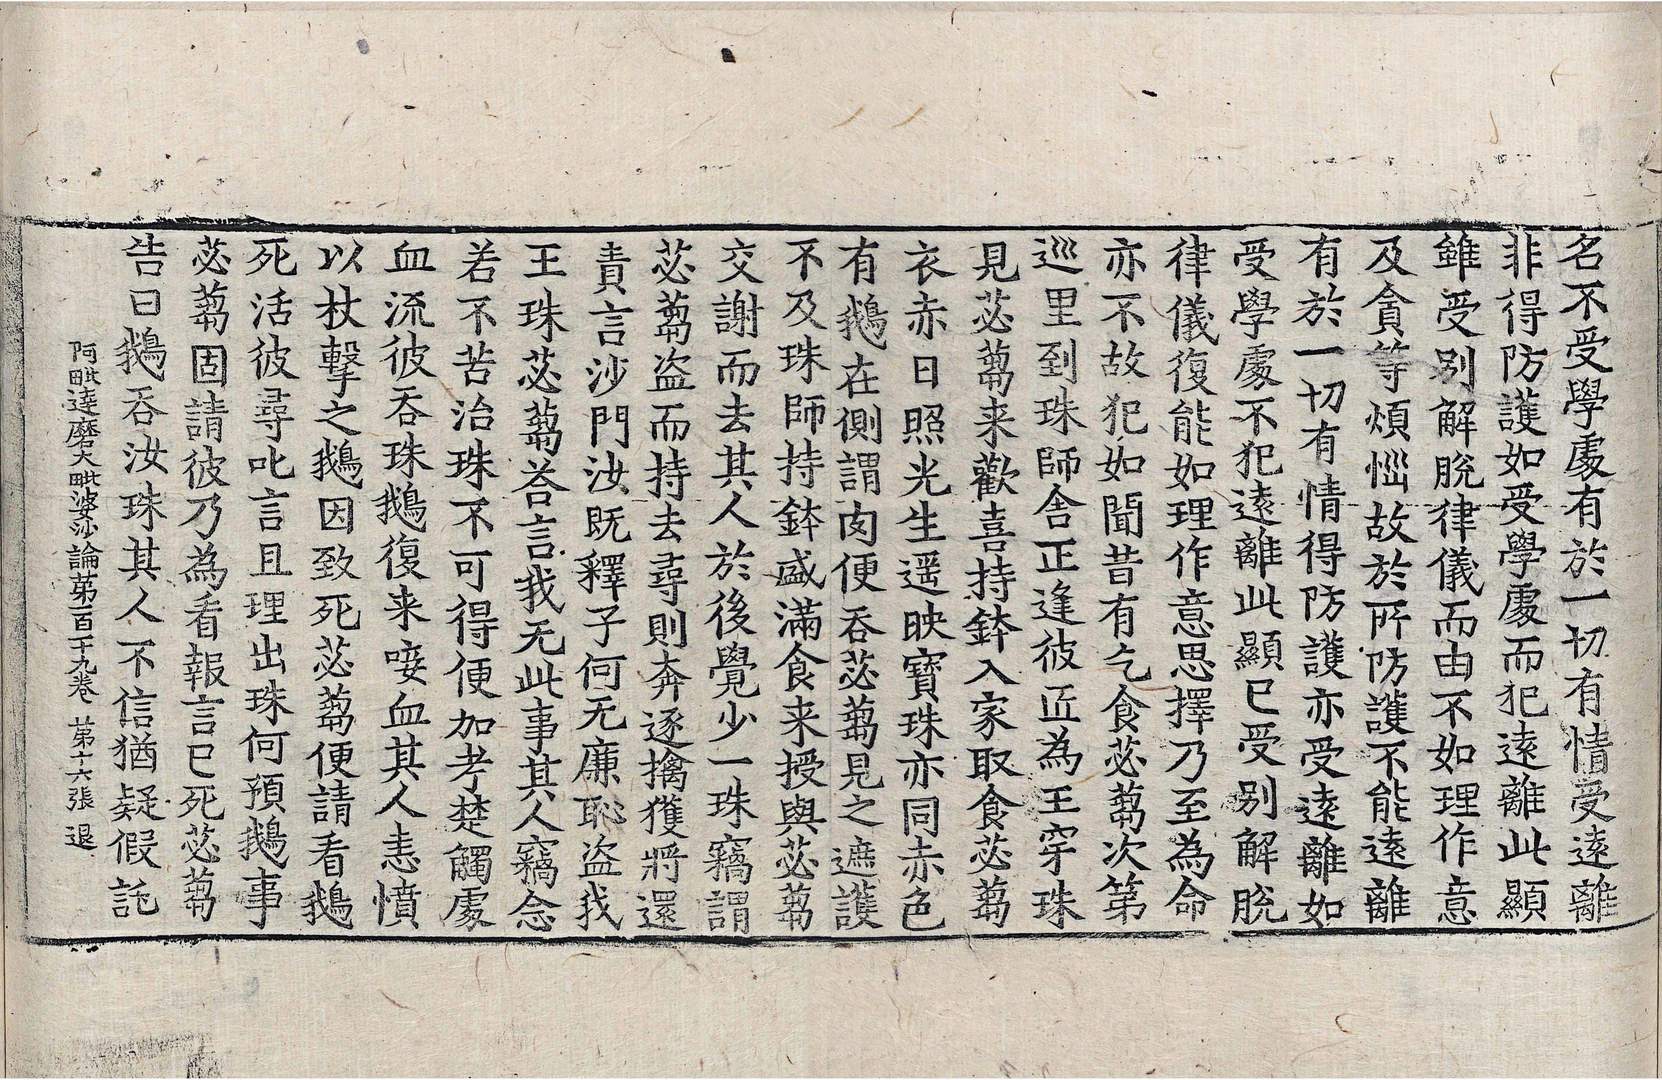 名不受學處有於一切有情受遠離
非得防護如受學處而犯遠離此顯
雖受別解脫律儀而由不如理作意
及貪等煩惱故於所防護不能遠離
有於一切有情得防護亦受遠離如
受學處不犯遠離此顯已受別解脫
律儀復能如理作意思擇乃至為命
亦不故犯如聞昔有乞食苾蒭次第
巡里到珠師舍正逢彼匠為王穿珠
見苾蒭来歡喜持鉢入家取食苾蒭
衣赤日照光生遥映寶珠亦同赤色
有鵝在側謂肉便吞苾蒭見之遮護
不及珠師持鉢盛滿食来授與苾蒭
交謝而去其人於後覺少一珠竊謂
苾蒭盜而持去尋則奔逐擒獲將還
責言沙門汝既釋子何无廉恥盜我
王珠苾蒭荅言我无此事其人竊念
若不苦治珠不可得便加考楚觸處
血流彼吞珠鵝復来唼血其人恚憤
以杖擊之鵝因致死苾蒭便請看鵝
死活彼尋叱言且理出珠何預鵝事
苾蒭固請彼乃為看報言已死苾蒭
告曰鵝吞汝珠其人不信猶疑假託
阿毗達磨大毗婆沙論第一百一十九卷 第十六張 退